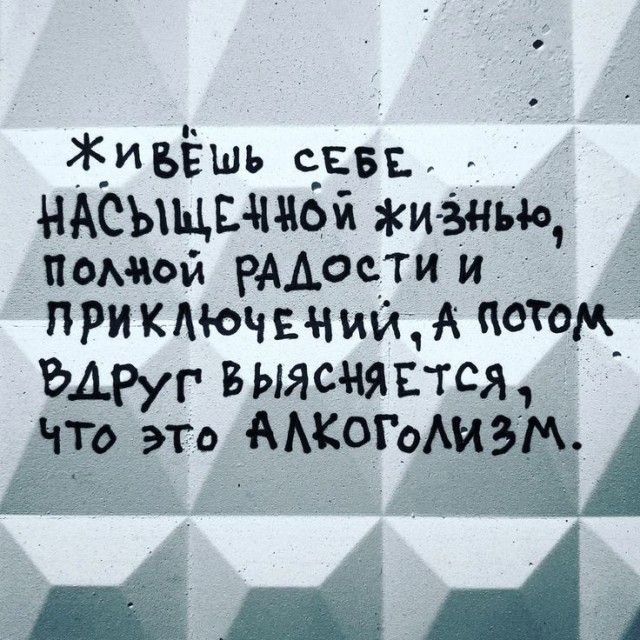 Живёшь себе
насыщенной жизнью,
полной радости и
приключений, а потом
вдруг выясняется,
что это алкоголизм.